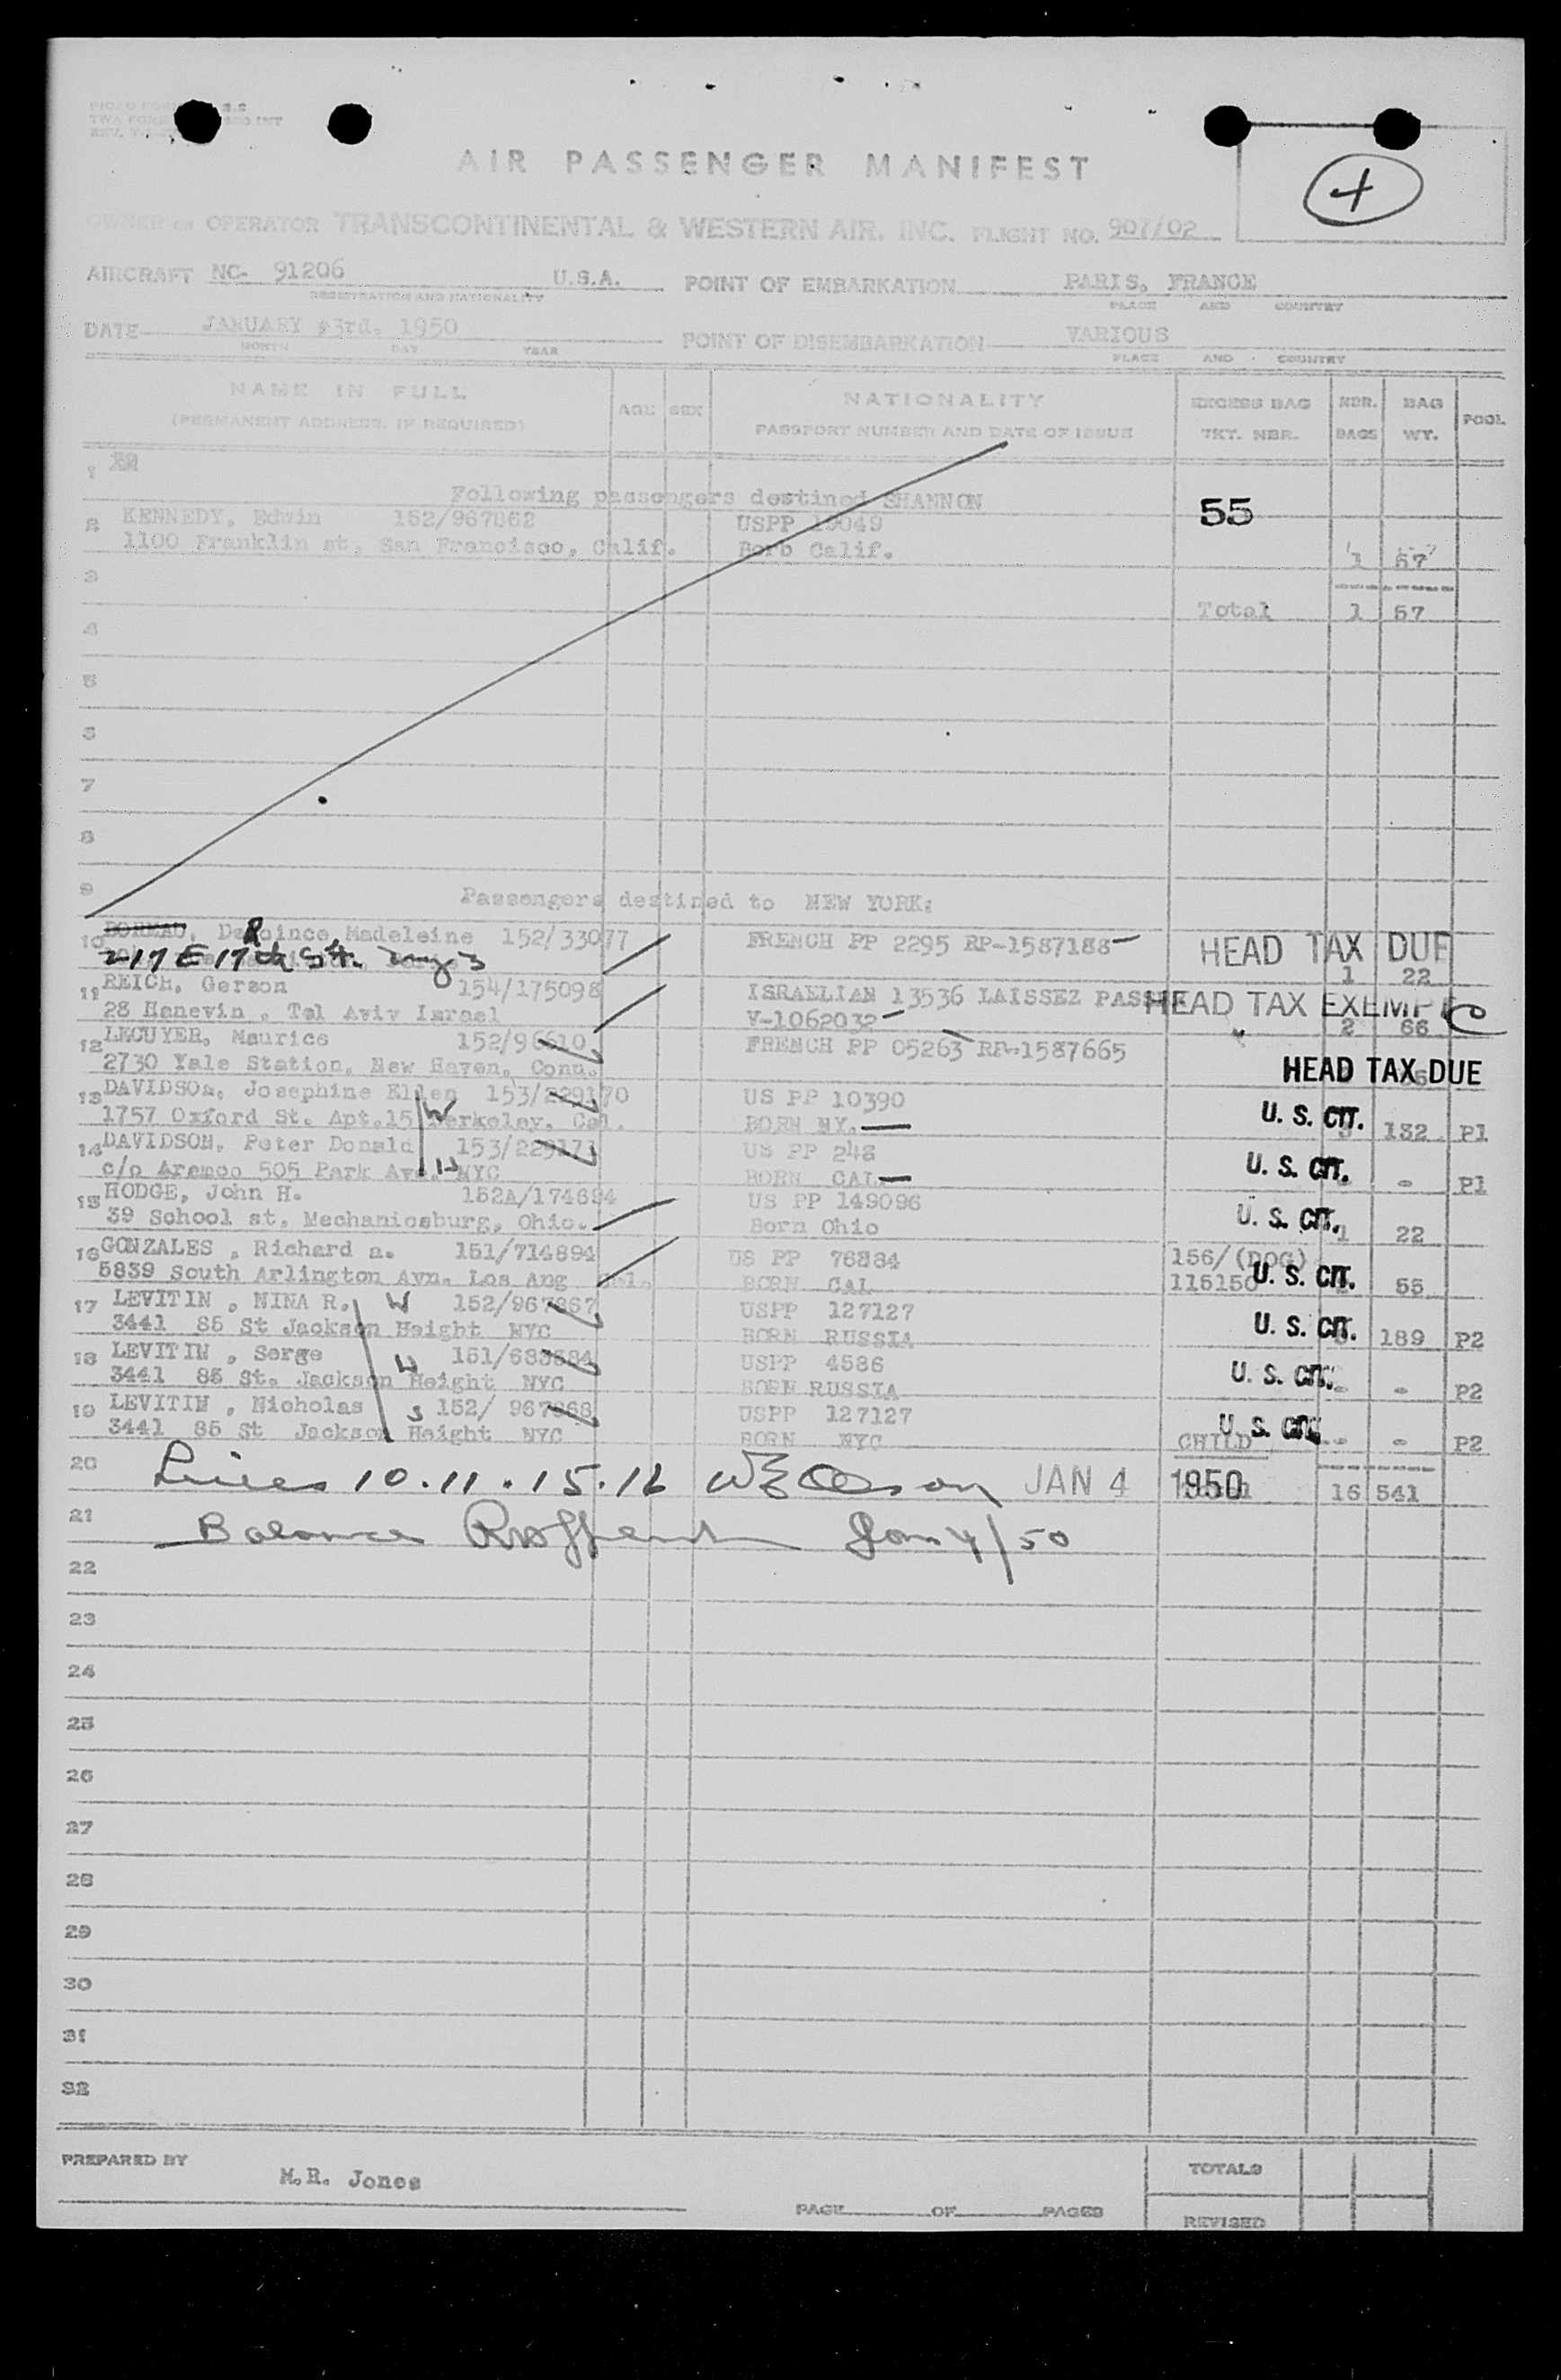 AIR PASSENGER MANIFEST
4
OWNER OR OPERATOR TRANSCONTINENTAL & WESTERN AIR, INC. FLIGHT NO. 907/02
AIRCRAFT NC- 91206 U.S.A. POINT OF EMBARKATION PARIS, FRANCE
REGISTRATION AND NATIONALITY PLACE AND COUNTRY
DATE JANUARY #3rd, 1950 POINT OF DISEMBARKATION VARIOUS
MONTH DAY YEAR PLACE AND COUNTRY
NAME IN FULL AGE SEX NATIONALITY EXCESS BAG NBR. BAG POOL
(PERMANENT ADDRESS, IF REQUIRED) PASSPORT NUMBER AND DATE OF ISSUE TKT. NBR. BAGS WT.
1
Following passengers destined SHANNON 55
2 KENNEDY, Edwin 152/967862 USPP 19049
1100 Franklin st, San Francisco, Calif. Born Calif. 1 57
3
Total 1 57
4
5
6
7
8
9 Passengers destined to NEW YORK:
10 BOREAU, DeRoince Madeleine 152/33077 FRENCH PP 2295 RP-1587188 HEAD TAX DUE
217 E 17th St. 1 22
11 REICH, Gerson 154/175098 ISRAELIAN 13536 LAISSEZ PASSER HEAD TAX EXEMPT
28 Hanevin, Tel Aviv Israel V-1062032 2 66
12 LECUYER, Maurice 152/96610 FRENCH PP 05263 RP-1587665
2730 Yale Station, New Haven, Conn. HEAD TAX DUE
13 DAVIDSON, Josephine Ellen 153/229170 US PP 10390 U. S. CIT.
1757 Oxford St. Apt.15 W Berkeley, Cal. BORN NY. 3 132 P1
14 DAVIDSON, Peter Donald 153/229171 US PP 248 U. S. CIT.
c/o Aramco 505 Park Ave. H NYC BORN CAL - - P1
15 HODGE, John H. 152A/174694 US PP 149096 U. S. CIT.
39 School st, Mechanicsburg, Ohio. Born Ohio 1 22
16 GONZALES, Richard a. 151/714894 US PP 76884 156/(DOG)
5839 South Arlington Avn. Los Ang Cal. BORN CAL 115150 U. S. CIT. 55
17 LEVITIN, NINA R. W 152/967867 USPP 127127 U. S. CIT.
3441 85 St Jackson Height NYC BORN RUSSIA 189 P2
18 LEVITIN, Serge H 151/683584 USPP 4586 U. S. CIT.
3441 85 St. Jackson Height NYC BORN RUSSIA - - P2
19 LEVITIN, Nicholas S 152/ 967868 USPP 127127 U. S. CIT.
3441 85 St Jackson Height NYC BORN NYC CHILD - - P2
20 Lines 10.11.15.16 JAN 4 1950 16 541
21 Balance Jan 4/50
22
23
24
25
26
27
28
29
30
31
32
PREPARED BY M.R. Jones TOTALS
PAGE OF PAGES REVISED